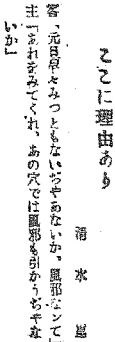 ここに理由あり
清水崑
客「元日早々みつともないぢやあないか、風邪なンて」
主「まれをみてくれ、あの穴では風邪も引かうぢやな
いか」